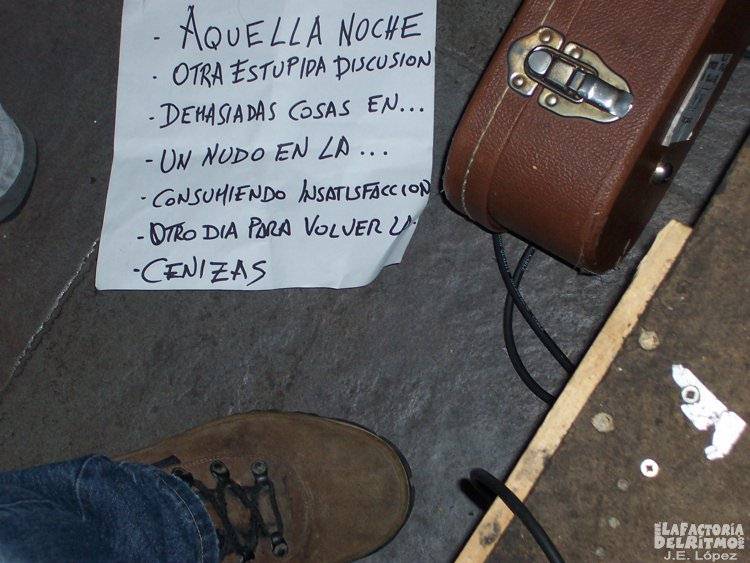 - AQUELLA NOCHE
- OTRA ESTUPIDA DISCUSION
- DEMASIADAS COSAS EN...
- UN NUDO EN LA ...
- CONSUMIENDO INSATISFACCION
- OTRO DIA PARA VOLVER LA
- CENIZAS
LA FACTORÍA
DEL RITMO
J.E. López